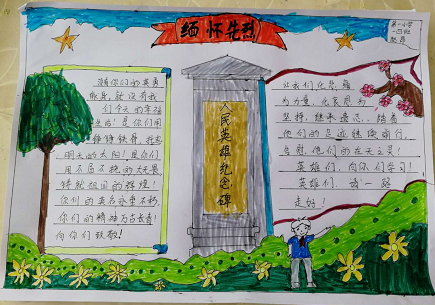 缅怀先烈
第一小学
一四班
没有你们的英勇
献身,就没有我
们今天的幸福
生活!是你们用
铮铮铁骨,托起
明天的太阳!是你们
用不屈不挠的大无畏
铸就祖国的辉煌!
你们的英名永垂不朽
你们的精神万古长青!
向你们致敬!
人民英雄纪念碑
让我们化悲痛
为力量,化哀思为
坚持,继承遗志,踏着
他们的足迹继续前行,
告慰他们的在天之灵!
英雄们,向你们学习!
英雄们,请一路
走好!